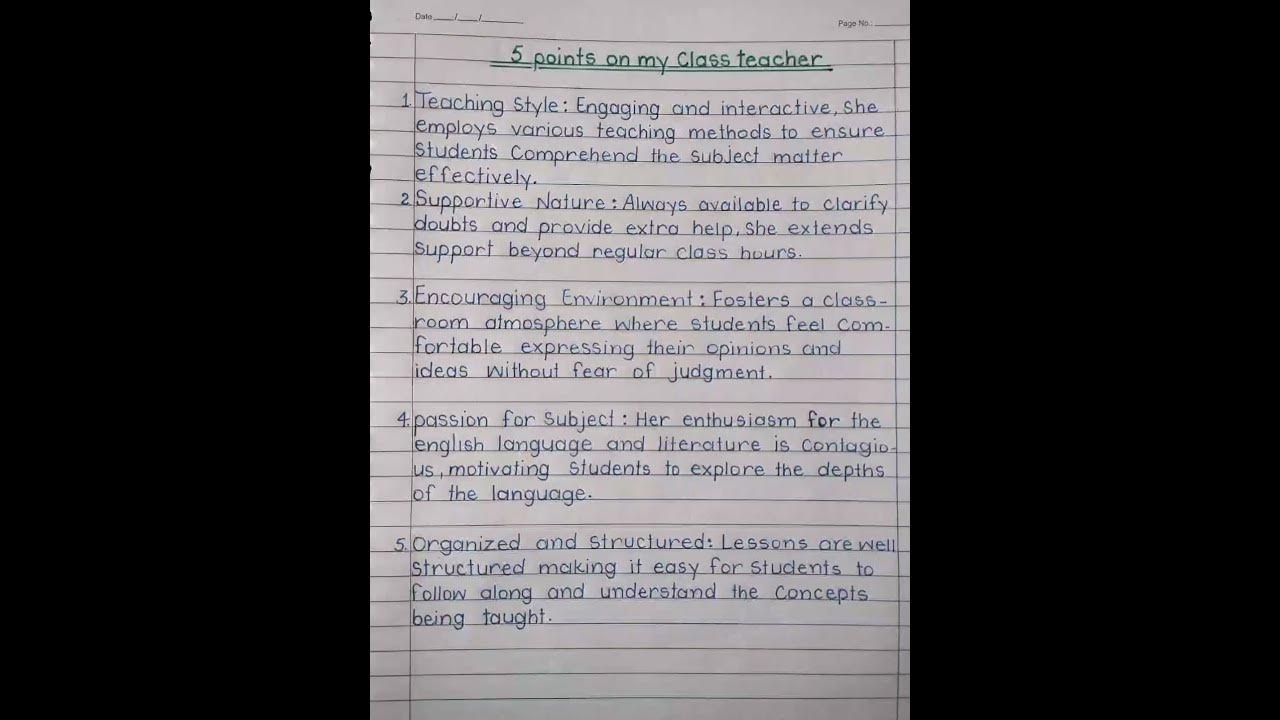 Date ___/___/______
Page No.: ______
5 points on my Class teacher
1. Teaching Style: Engaging and interactive, She
employs various teaching methods to ensure
Students Comprehend the subject matter
effectively.
2. Supportive Nature: Always available to clarify
doubts and provide extra help, She extends
Support beyond regular class hours.
3. Encouraging Environment: Fosters a class-
room atmosphere where students feel Com-
fortable expressing their opinions and
ideas without fear of judgment.
4. passion for Subject: Her enthusiasm for the
english language and literature is Contagio-
us, motivating Students to explore the depths
of the language.
5. Organized and Structured: Lessons are well
Structured making it easy for Students to
follow along and understand the Concepts
being taught.